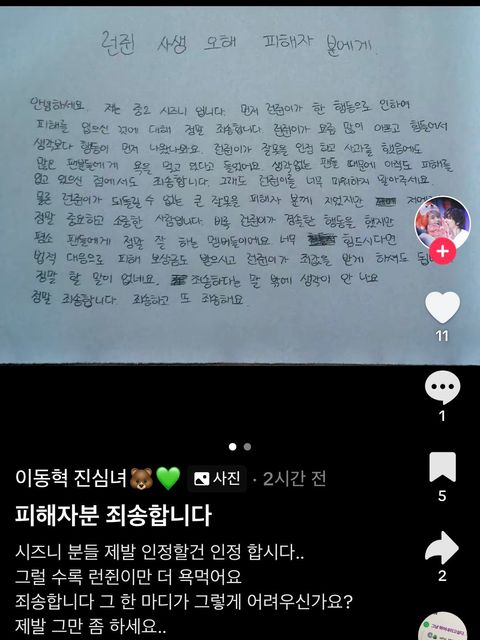 런쥔 사생 오해 피해자 분에게.
안녕하세요. 저는 중2 시즈니 입니다. 먼저 런쥔이가 한 행동으로 인하여
피해를 입으신 것에 대해 정말 죄송합니다. 런쥔이가 요즘 많이 아프고 힘들어서
생각보다 행동이 먼저 나왔나봐요. 런쥔이가 잘못을 인정 하고 사과를 했음에도
많은 팬분들에게 욕을 먹고 있다고 들었어요. 생각없는 팬들 때문에 아직도 피해를
입고 있으신 점에서도 죄송합니다. 그래도 런쥔이를 너무 미워하지 말아주세요
물론 런쥔이가 되돌릴 수 없는 큰 잘못을 피해자 분께 지었지만 저에
정말 중요하고 소중한 사람입니다. 비록 런쥔이가 경솔한 행동을 했지만
평소 팬들에게 정말 잘 하는 멤버들이에요. 너무 힘드시다면
법적 대응으로 피해 보상금도 받으시고 런쥔이가 죄값을 받게 하셔도 됩
정말 할 말이 없네요. 죄송하다는 말 밖에 생각이 안 나요
정말 죄송합니다. 죄송하고 또 죄송해요.
11
1
이동혁 진심녀🐻💚 사진 · 2시간 전
5
피해자분 죄송합니다
시즈니 분들 제발 인정할건 인정 합시다..
그럴 수록 런쥔이만 더 욕먹어요
2
죄송합니다 그 한 마디가 그렇게 어려우신가요?
제발 그만 좀 하세요..